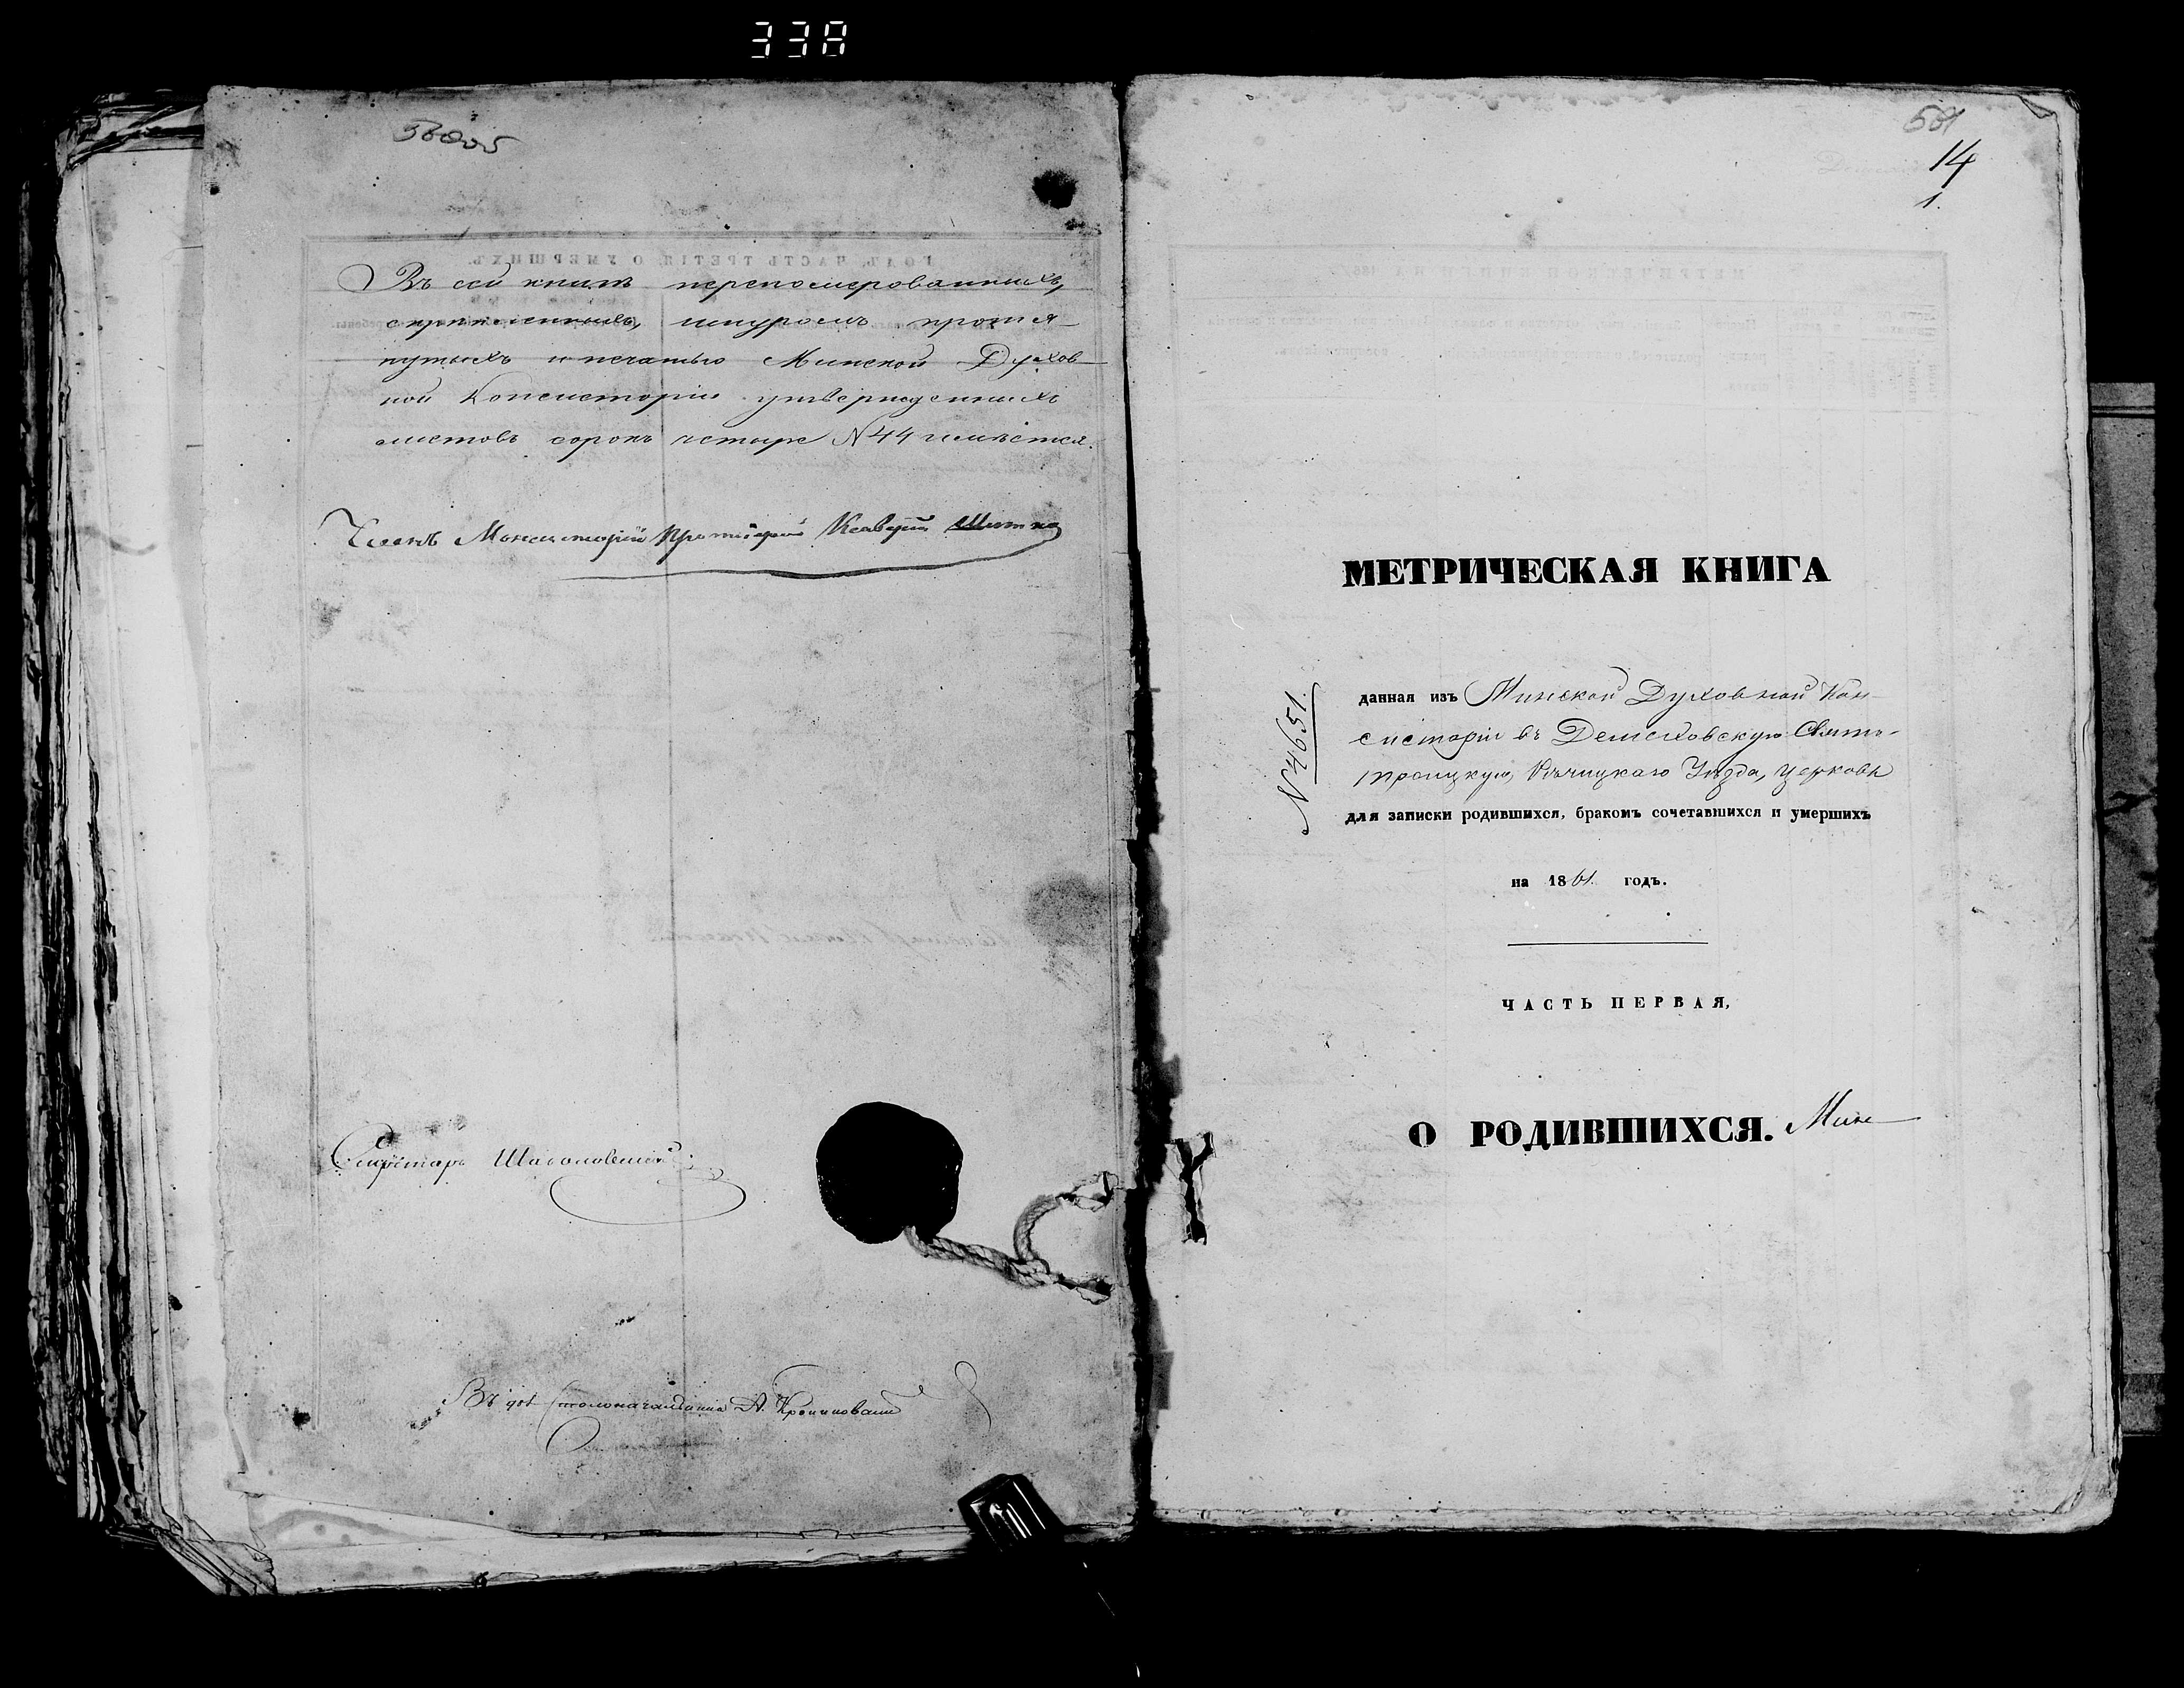 338
Въ сей книгѣ переномерованныхъ,
скрѣпленныхъ, шнуромъ протя-
нутыхъ и печатью Минской Духов
ной Консисторіи утвержденныхъ
листовъ сорокъ четыре №44 имѣется.
Членъ Консисторіи Протоіерей Ксаверій
Секретарь
Столоначальника А.
14
1.
МЕТРИЧЕСКАЯ КНИГА
№4651.
данная изъ Минской Духовной Кон-
систоріи въ Демеховскую Свято-
троицкую, Рѣчицкаго Уѣзда, церковь
для записки родившихся, бракомъ сочетавшихся и умершихъ
на 1861. годъ.
ЧАСТЬ ПЕРВАЯ,
О РОДИВШИХСЯ. Мин